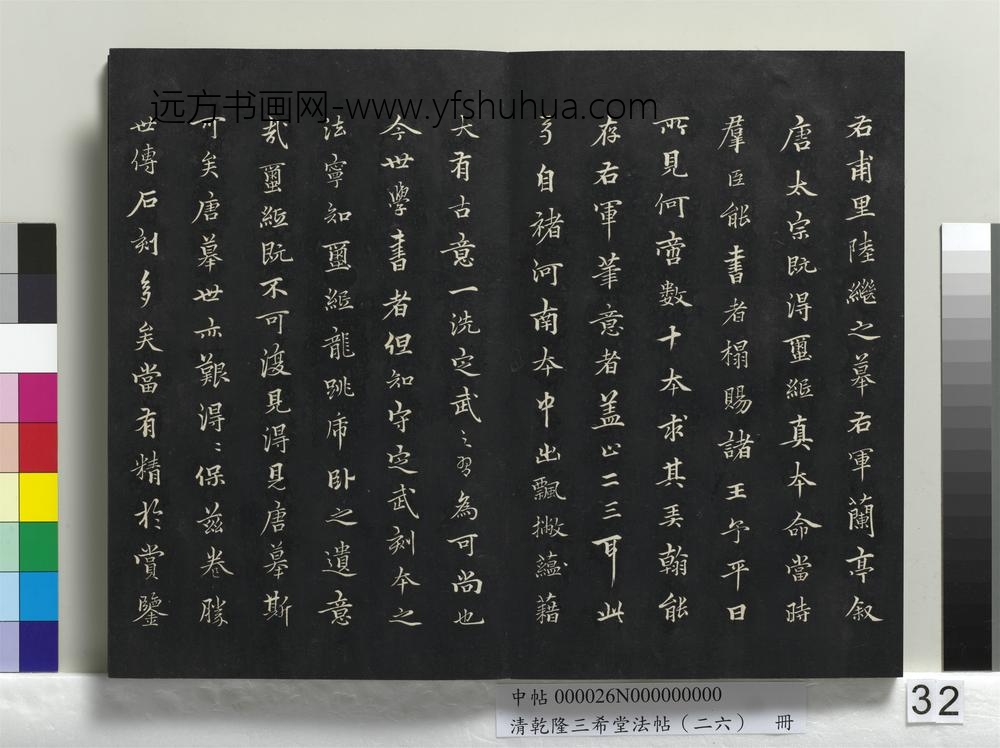 远方书画网-www.yfshuhua.com
右甫里陸繼之摹右軍蘭亭叙
唐太宗既得璽紙真本命當時
羣臣能書者榻賜諸王予平日
所見何啻數十本求其弄翰能
存右軍筆意者盖止二三耳此
乃自褚河南本中出飄撇蘊藉
大有古意一洗定武之習為可尚也
今世學書者但知守定武刻本之
法寧知璽紙龍跳虎卧之遺意
哉璽紙既不可復見得見唐摹斯
可矣唐摹世亦艱得得保兹卷勝
世傳石刻多矣當有精於賞鑒
中帖 000026N000000000
清乾隆三希堂法帖（二六） 冊
32